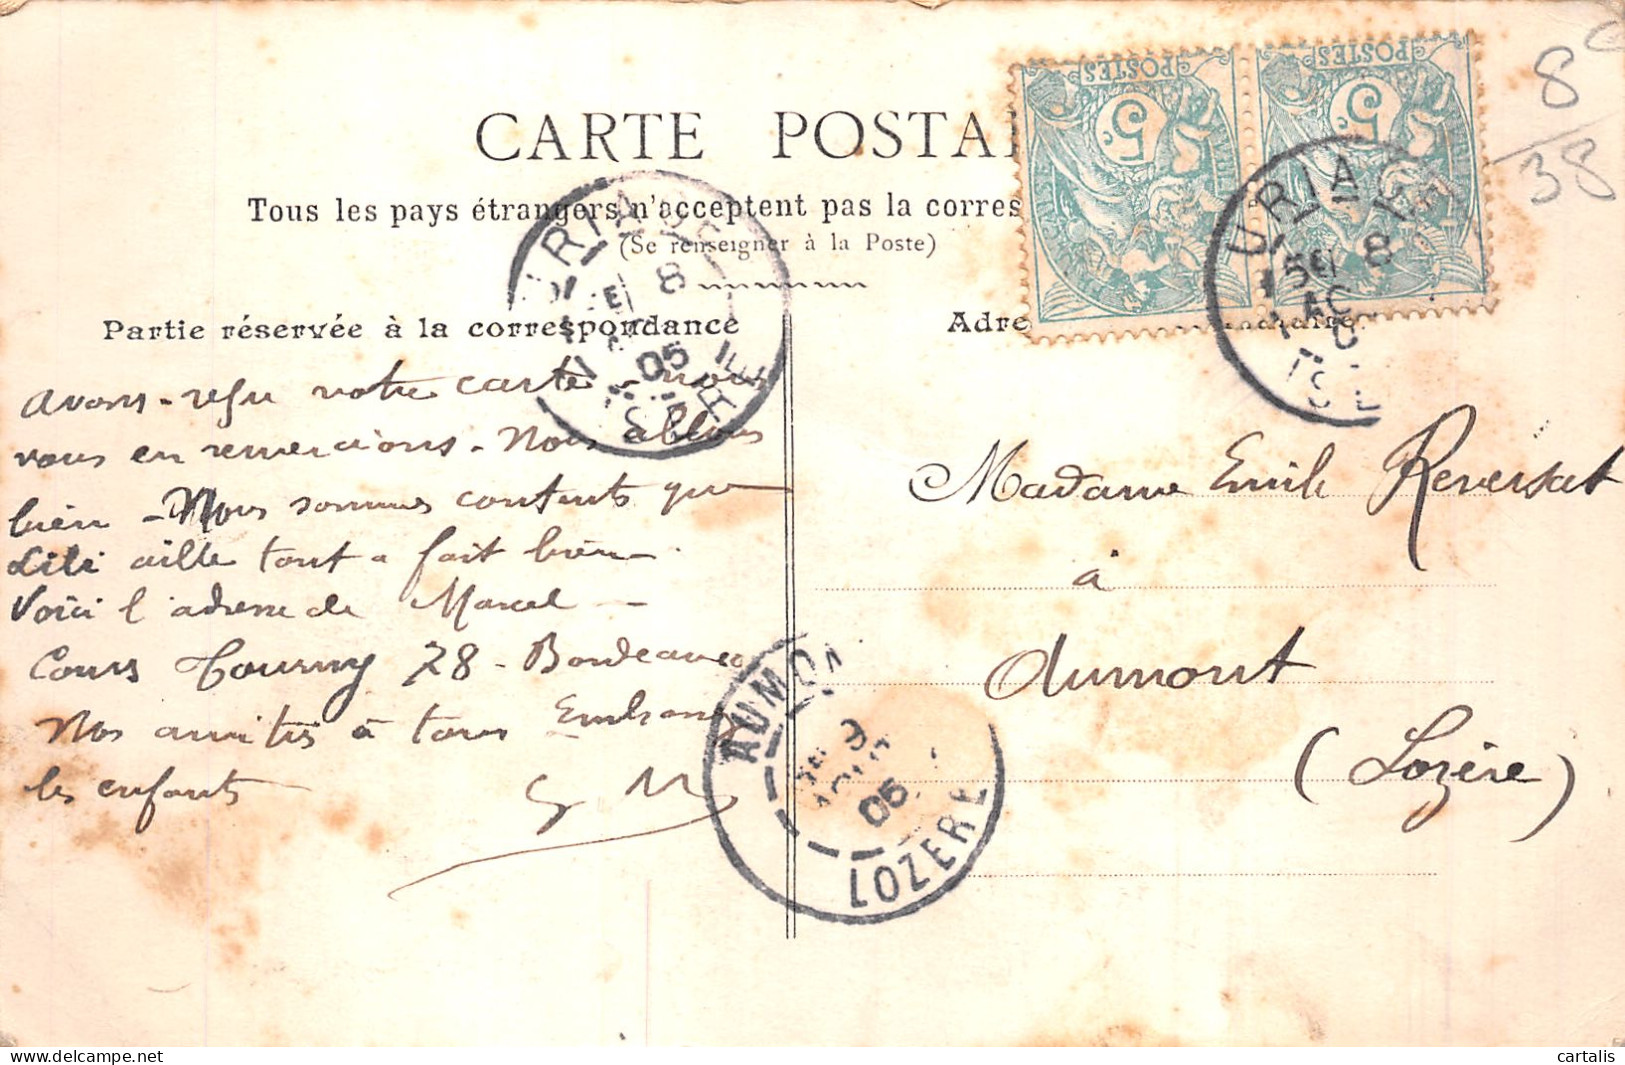 CARTE POSTAL
Tous les pays étrangers n'acceptent pas la corres
(Se renseigner à la Poste)
Partie réservée à la correspondance
Adre
POSTES
5c
POSTES
5c
8
38
URIAGE
8
05
ISERE
URIAGE
8
Avons-reçu votre carte - nous
vous en remercions. Nous allons
bien - Nous sommes contents que
Lili aille tout a fait bien.
Voici l'adresse de Marcel -
Cours Tourny 78 - Bordeaux
Nos amitiés à tous Embrassez
les enfants
G M
Madame Emile Reversat
à
Aumont
(Lozère)
AUMONT
9
05
LOZERE
cartalis